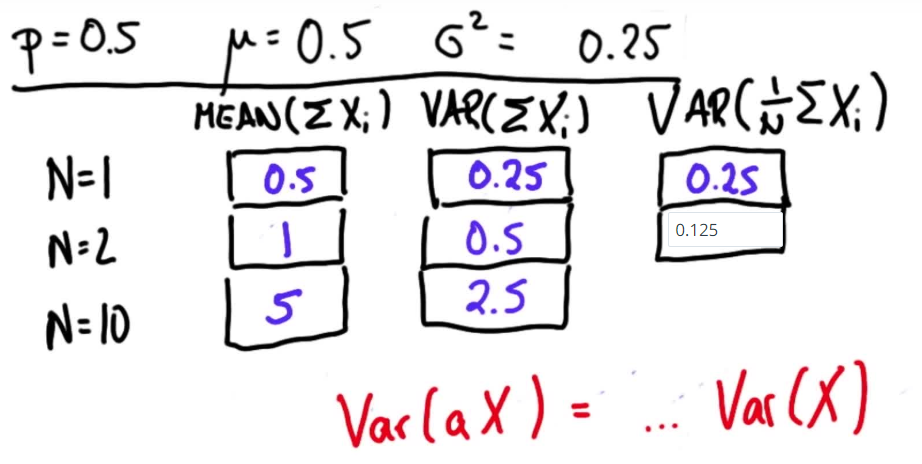 p = 0.5 μ = 0.5 σ² = 0.25
MEAN(ΣXᵢ) VAR(ΣXᵢ) VAR(1/N ΣXᵢ)
N=1 0.5 0.25 0.25
N=2 1 0.5 0.125
N=10 5 2.5
Var(aX) = ... Var(X)